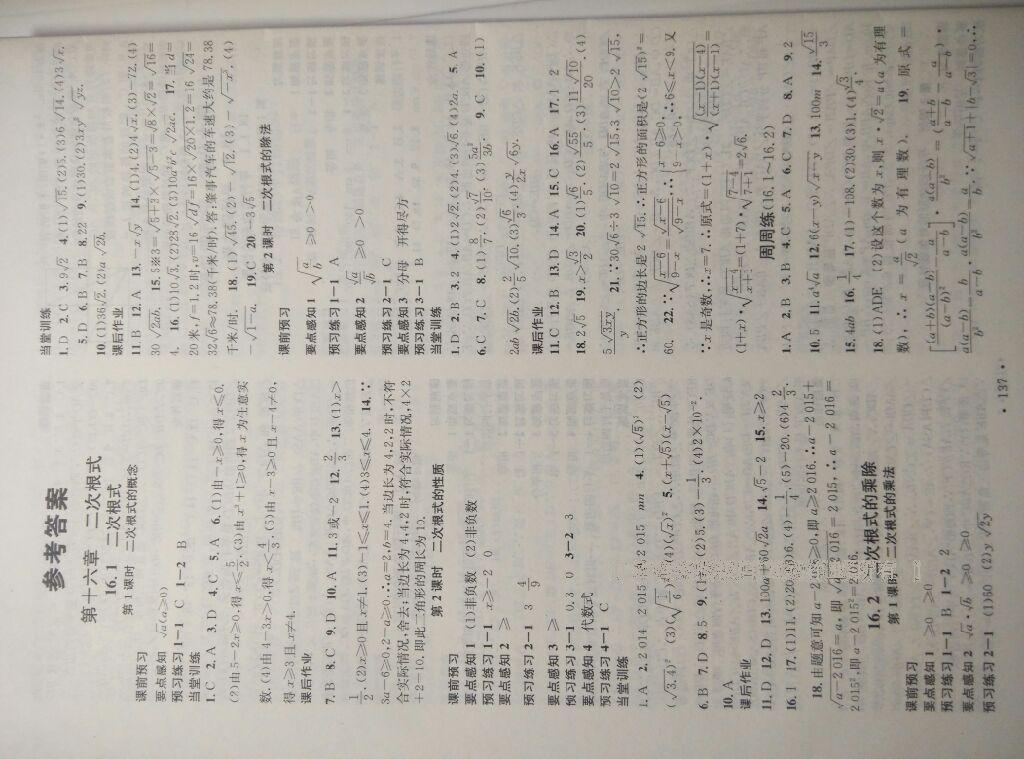 参考答案
第十六章 二次根式
16.1 二次根式
第1课时 二次根式的概念
课前预习
要点感知 √a(a≥0)
预习练习1-1 C 1-2 B
当堂训练
1.C 2.A 3.D 4.C 5.A 6.(1)由-x≥0,得x≤0.
(2)由5-2x≥0,得x≤5/2.(3)由x²+1≥0,得x为任意实
数.(4)由4-3x>0,得x<4/3.(5)由x-3≥0且x-4≠0,
得x≥3且x≠4.
课后作业
7.B 8.C 9.D 10.A 11.3或-2 12.2/3 13.(1)x>
1/2.(2)x≥0且x≠1.(3)-1≤x≤1.(4)3≤x≤4. 14.∵
3a-6≥0,2-a≥0,∴a=2,b=4.当边长为4,2,2时,不符
合实际情况,舍去;当边长为4,4,2时,符合实际情况,4×2
+2=10.即此三角形的周长为10.
第2课时 二次根式的性质
课前预习
要点感知1 (1)非负数 (2)非负数
预习练习1-1 x≥-2 0
要点感知2 ≥
预习练习2-1 3 4/9
要点感知3 ≥
预习练习3-1 0.3 0 3-2 3
要点感知4 代数式
预习练习4-1 C
当堂训练
1.A 2.2 014 2 015 3.2 015 mn 4.(1)(√5)² (2)
(√3.4)² (3)(√(1/6))² (4)(√x)² 5.(x+√5)(x-√5)
6.B 7.D 8.5 9.(1)7.(2)5.(3)-1/3.(4)2×10⁻².
10.A
课后作业
11.D 12.D 13.1300a+60√2a 14.√5-2 15.x≥2
16.1 17.(1)11.(2)20.(3)6.(4)-1/4.(5)-20.(6)4 2/3.
18.由题意可知a-2 016≥0,即a≥2 016.∴a-2 015+
√(a-2 016)=a,即√(a-2 016)=2 015,∴a-2 016=
2 015²,即a-2 015²=2 016.
16.2 二次根式的乘除
第1课时 二次根式的乘法
课前预习
要点感知1 ≥0 ≥0
预习练习1-1 B 1-2 2
要点感知2 √a·√b ≥0 ≥0
预习练习2-1 (1)60 (2)y√2y
当堂训练
1.D 2.C 3.9√2 4.(1)√15.(2)5.(3)6√14.(4)3√x.
5.D 6.B 7.B 8.22 9.(1)30.(2)3xy²√yz.
10.(1)36√2.(2)a√2b.
课后作业
11.B 12.A 13.-x√y 14.(1)4.(2)4√x.(3)-72.(4)
30√2ab. 15.5※3=√(5+3)×√(5-3)=√8×√2=√16=
4. 16.(1)10√3.(2)23√2.(3)10a²b²c√2ac. 17.当d=
20米,f=1.2时,v=16√df=16×√(20×1.2)=16√24=
32√6≈78.38(千米/时).答:肇事汽车的车速大约是78.38
千米/时. 18.(1)√15.(2)-√12.(3)-√(-x³).(4)
-√(1-a). 19.C 20.-3√5
第2课时 二次根式的除法
课前预习
要点感知1 √(a/b) ≥0 >0
预习练习1-1 A
要点感知2 √a/√b ≥0 >0
预习练习2-1 C
要点感知3 分母 开得尽方
预习练习3-1 B
当堂训练
1.D 2.B 3.2 4.(1)2√2.(2)4.(3)√6.(4)2a. 5.A
6.C 7.C 8.(1)8/7.(2)√7/10.(3)5a²/3b. 9.C 10.(1)
2ab√2b.(2)2/5√10.(3)√6/3.(4)y/2x√6y.
课后作业
11.C 12.B 13.D 14.A 15.C 16.A 17.1 2
18.2√5 19.x>√3/2 20.(1)√6/5.(2)-√55/5.(3)11√10/20.(4)
5√3xy/y. 21.∵30√6÷3√10=2√15,3√10>2√15,
∴正方形的边长是2√15.∴正方形的面积是(2√15)²=
60. 22.∵√((x-6)/(9-x))=√(x-6)/√(9-x),∴{x-6≥0,9-x>0,∴6≤x<9.又
∵x是奇数,∴x=7.∴原式=(1+x)·√((x-1)(x-4)/((x-1)(x+1)))=
(1+x)·√((x-4)/(x+1))=(1+7)·√((7-4)/(7+1))=2√6.
周周练(16.1~16.2)
1.A 2.B 3.B 4.C 5.A 6.C 7.D 8.A 9.2
10.5 11.a⁴√a 12.6(x-y)√(x-y) 13.100m 14.√15/3
15.4ab 16.1/4 17.(1)-108.(2)30.(3)1.(4)√3/4.
18.(1)ADE (2)设这个数为x,则x·√2=a(a为有理
数),∴x=a/√2(a为有理数). 19.原式=
· 137 ·